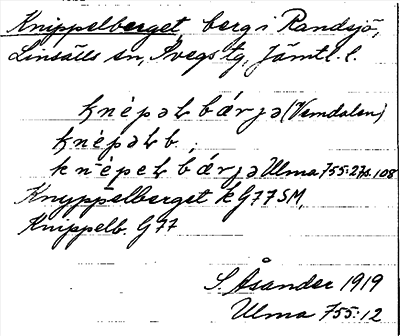 Knippelberget, berg i Randsjö,
Linsälls sn, Svegs tg, Jämtl. l.
knépəɫ bárjə (Vemdalen)
knépəɫb.;
knépeɫ bárjə Ulma 755:27s.108
Knyppelberget k G77 SM,
Knippelb. G77
S. Åsander 1919
Ulma 755:12